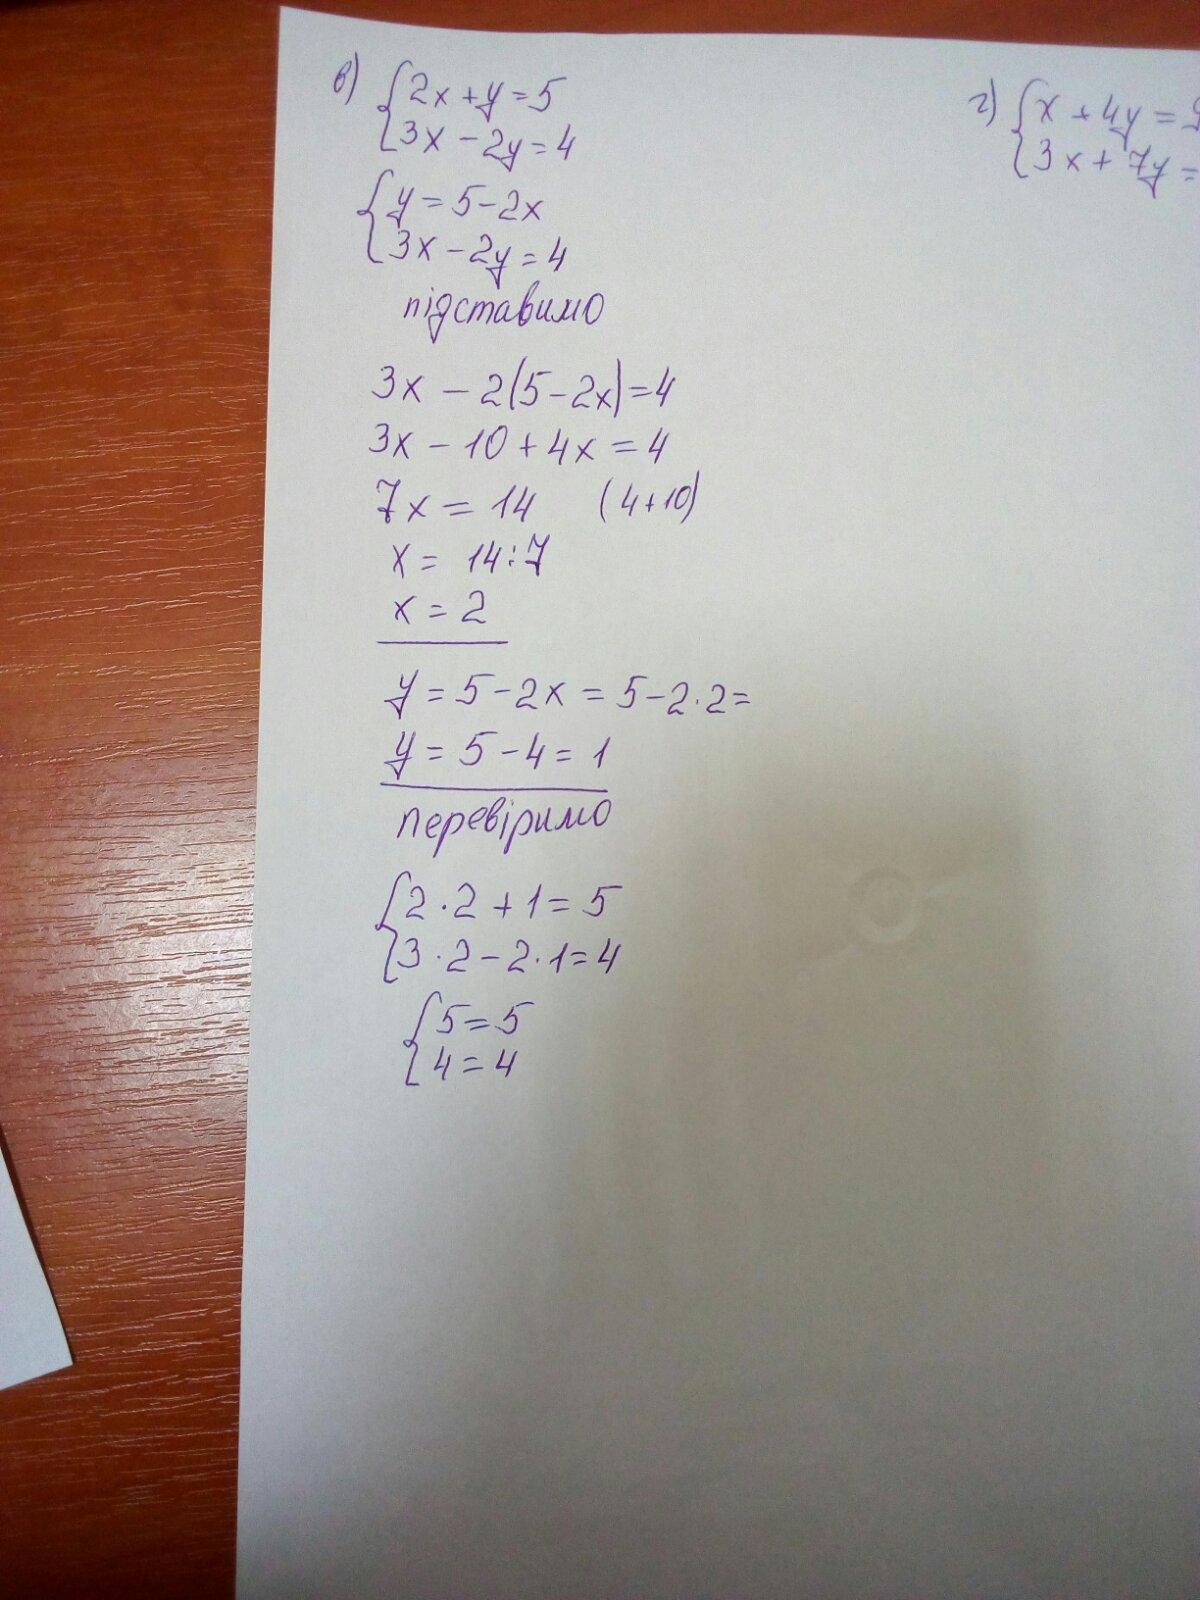 в) {2x + y = 5
3x - 2y = 4
{y = 5 - 2x
3x - 2y = 4
підставимо
3x - 2(5 - 2x) = 4
3x - 10 + 4x = 4
7x = 14 (4 + 10)
x = 14 : 7
x = 2
y = 5 - 2x = 5 - 2 · 2 =
y = 5 - 4 = 1
перевіримо
{2 · 2 + 1 = 5
3 · 2 - 2 · 1 = 4
{5 = 5
4 = 4
г) {x + 4y =
3x + 7y =